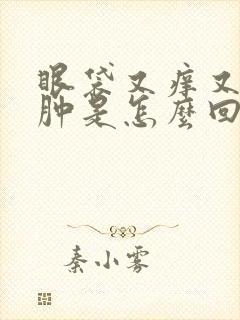 眼袋又痒又
肿是怎麼回
秦小雾